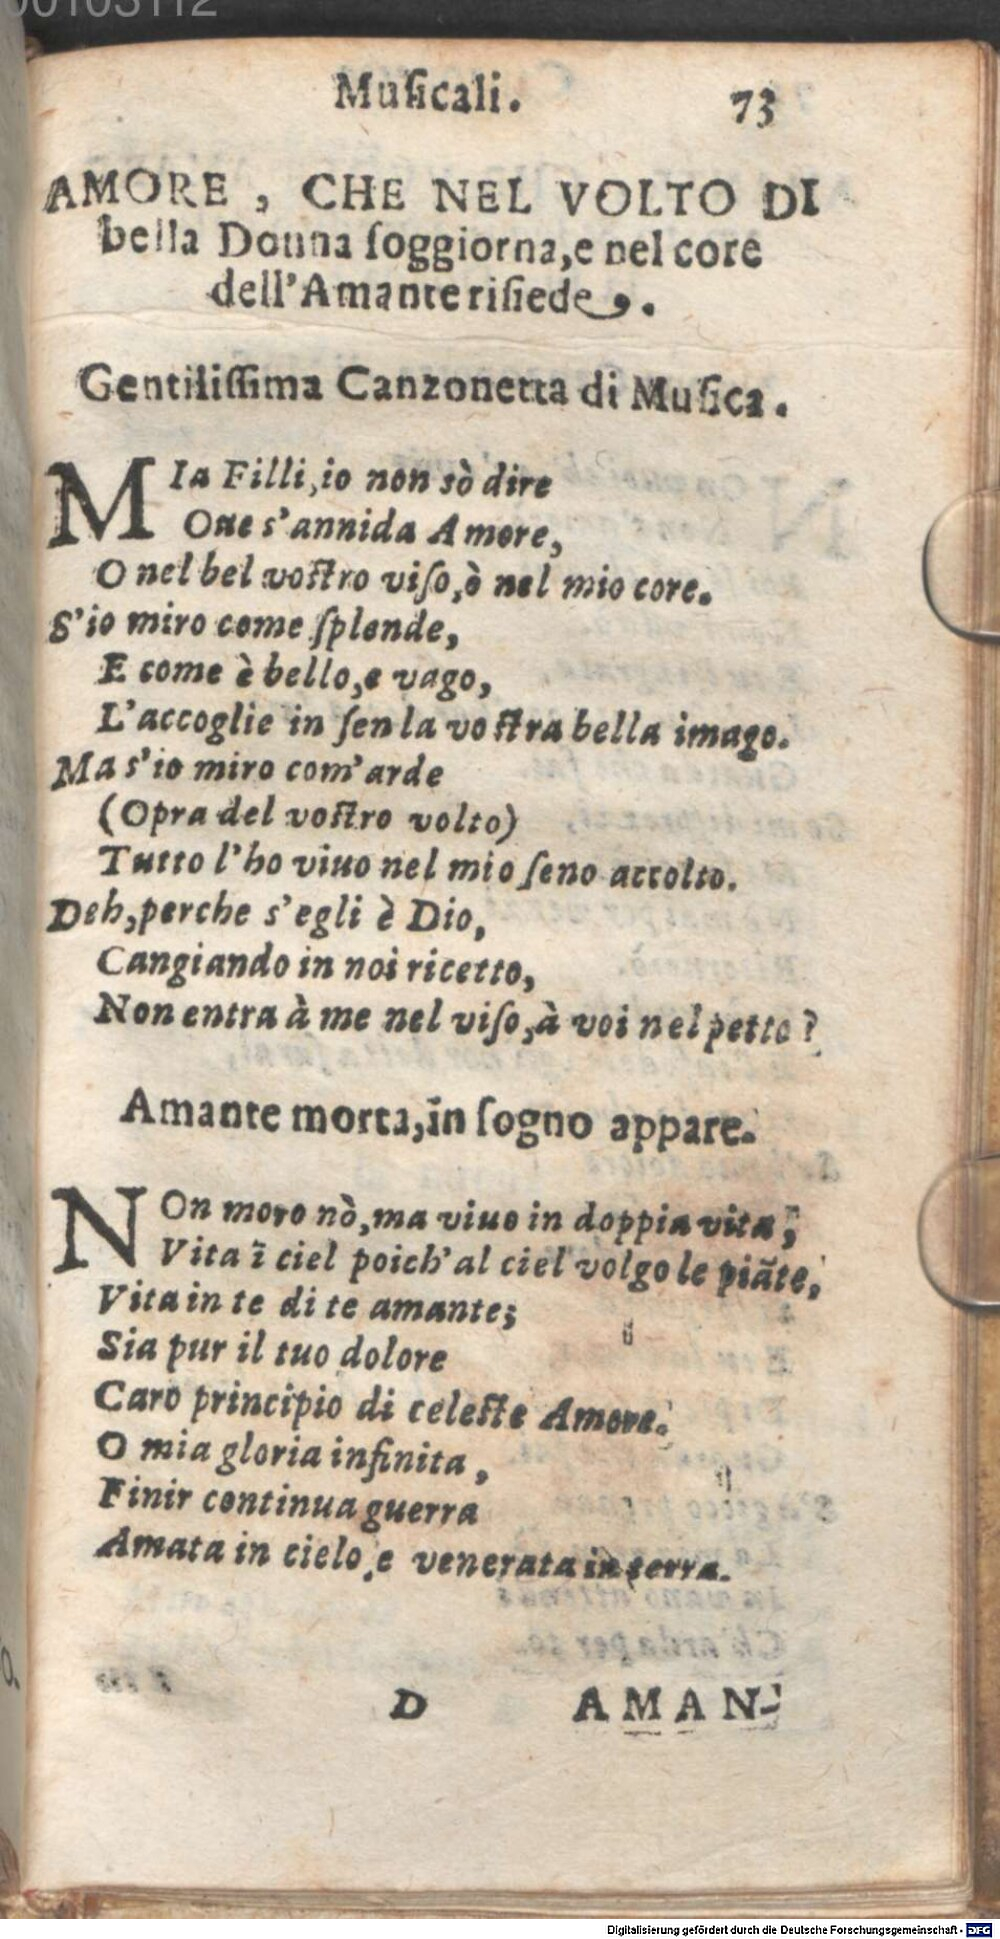 00103112
Muſicali. 73
AMORE, CHE NEL VOLTO DI
bella Donna ſoggiorna, e nel core
dell'Amante riſiede.
Gentiliſſima Canzonetta di Muſica.
MIa Filli, io non sò dire
Oue s'annida Amore,
O nel bel voſtro viſo, ò nel mio core.
S'io miro come ſplende,
E come è bello, e vago,
L'accoglie in ſen la voſtra bella imago.
Ma s'io miro com'arde
(Opra del voſtro volto)
Tutto l'ho viuo nel mio ſeno accolto.
Deh, perche s'egli è Dio,
Cangiando in noi ricetto,
Non entra à me nel viſo, à voi nel petto?
Amante morta, in ſogno appare.
NOn moro nò, ma viuo in doppia vita;
Vita ĩ ciel poich'al ciel volgo le piãte,
Vita in te di te amante;
Sia pur il tuo dolore
Caro principio di celeſte Amore.
O mia gloria infinita,
Finir continua guerra
Amata in cielo, e venerata in terra.
D AMAN-
Digitalisierung gefördert durch die Deutsche Forschungsgemeinschaft - DFG